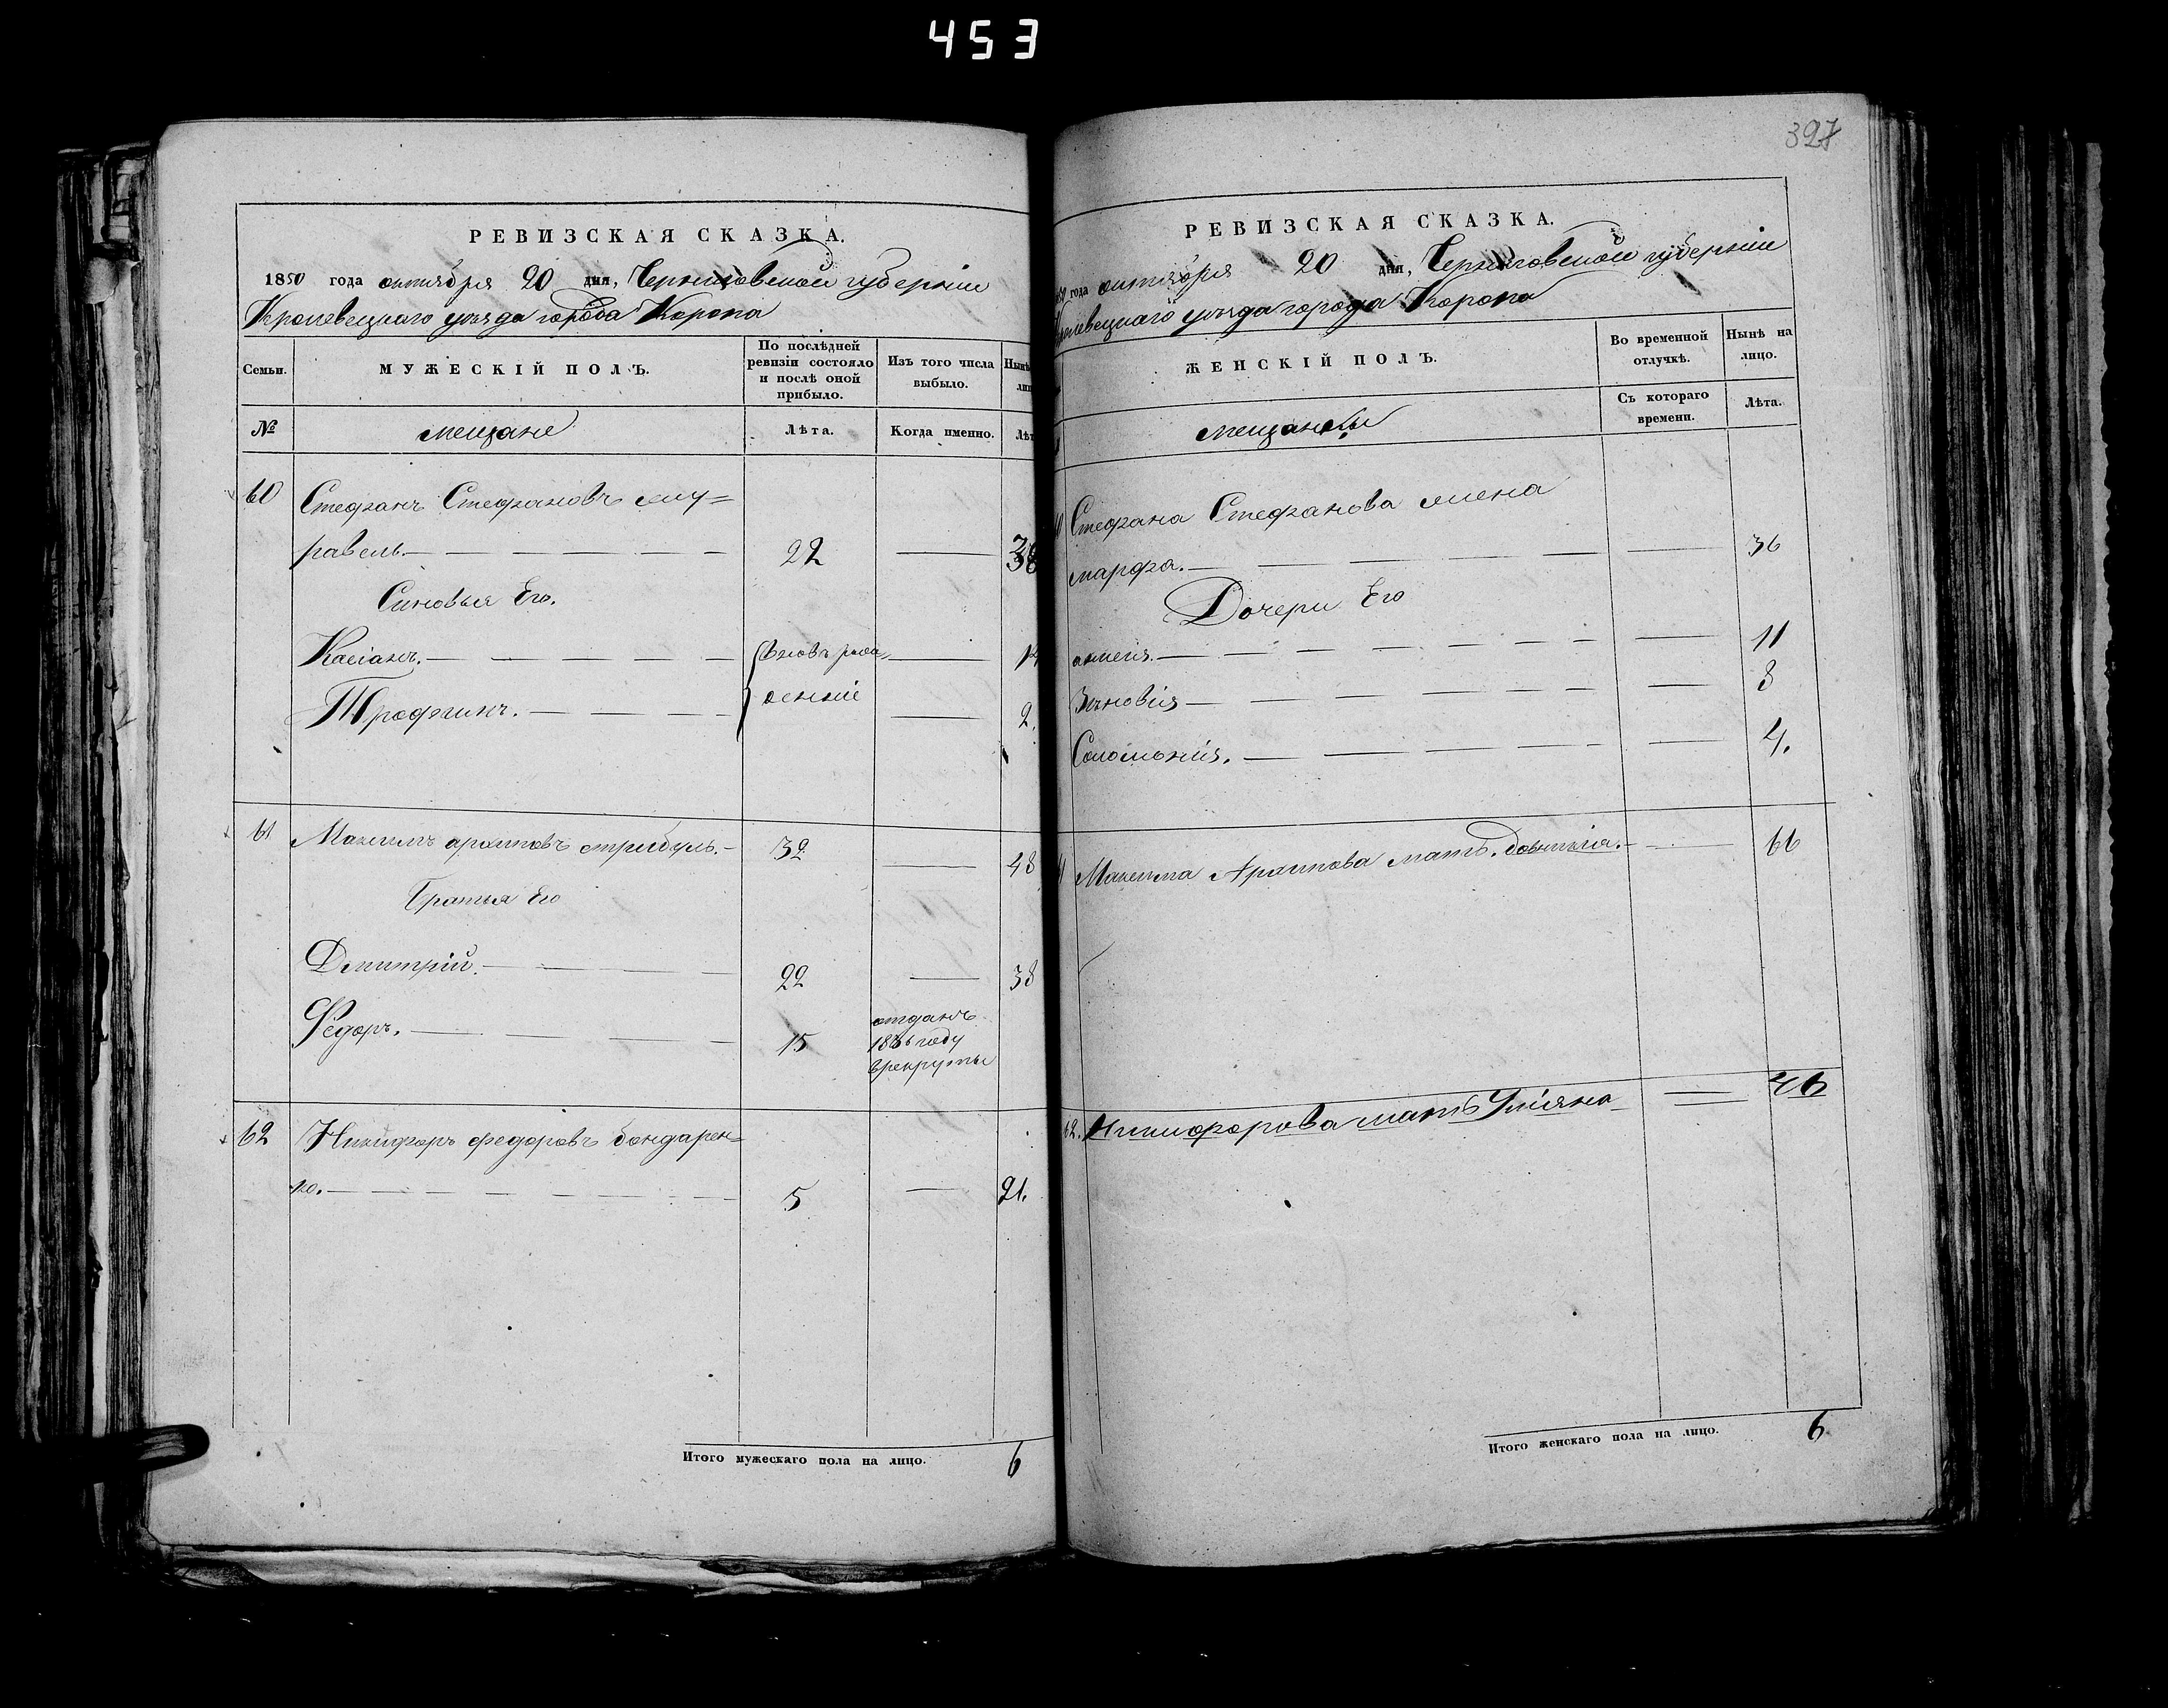 453
РЕВИЗСКАЯ СКАЗКА.
1850 года октября 20 дня, Черниговской губерніи
Кролевецкаго уѣзда города Коропа
Семьи.
МУЖЕСКІЙ ПОЛЪ.
По послѣдней ревизіи состояло и послѣ оной прибыло.
Изъ того числа выбыло.
Нынѣ
№
мещане
Лѣта.
Когда именно.
Лѣт
60 Стефанъ Стефановъ
равель. 22
Синовья Его.
Касіанъ. вновь рож
Трофимъ. денніе 2.
61 Максимъ архиповъ стрибуль. 32 48
Братья Его
Дмитрій. 22 38
Федоръ. 15 отданъ
году
врекруты
62 Никифоръ федоровъ бондарен=
ко. 5 21.
Итого мужескаго пола на лицо. 6
397
РЕВИЗСКАЯ СКАЗКА.
года октября 20 дня, Черниговской губерніи
уѣзда города Коропа
ЖЕНСКІЙ ПОЛЪ.
Во временной отлучкѣ.
Нынѣ на лицо.
мещанки
Съ котораго времени.
Лѣта.
Стефана Стефанова жена
марфа. 36
Дочери Его
11
Зѣновія 8
Соломонія. 4.
Максима Архипова мать. 66
62. Никифорова мать Уліяна 46
Итого женскаго пола на лицо. 6